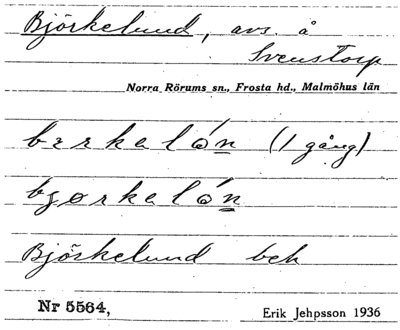 Björkelund, avs. å
Svenstorp
Norra Rörums sn., Frosta hd., Malmöhus län
bɛrkəlón (1 gång)
bjørkəlón
Björkelund bek
Nr 5564,
Erik Jehpsson 1936